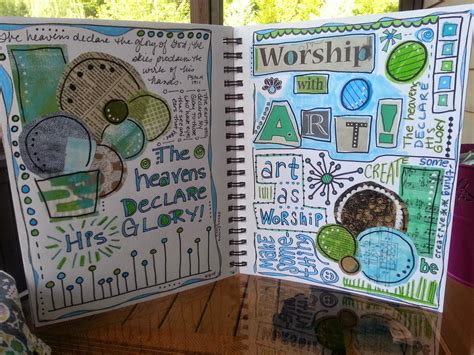 The heavens declare the glory of God; the
skies proclaim the
work of his
hands. Psalm 19:1
The
heavens
DECLARE
GLORY!
His
WORSHIP
with
ART!
The heavens
DECLARE
HIS
GLORY
art
as
WORSHIP
CREATE
some
MAKE
SOME-
THING
be
creative
built